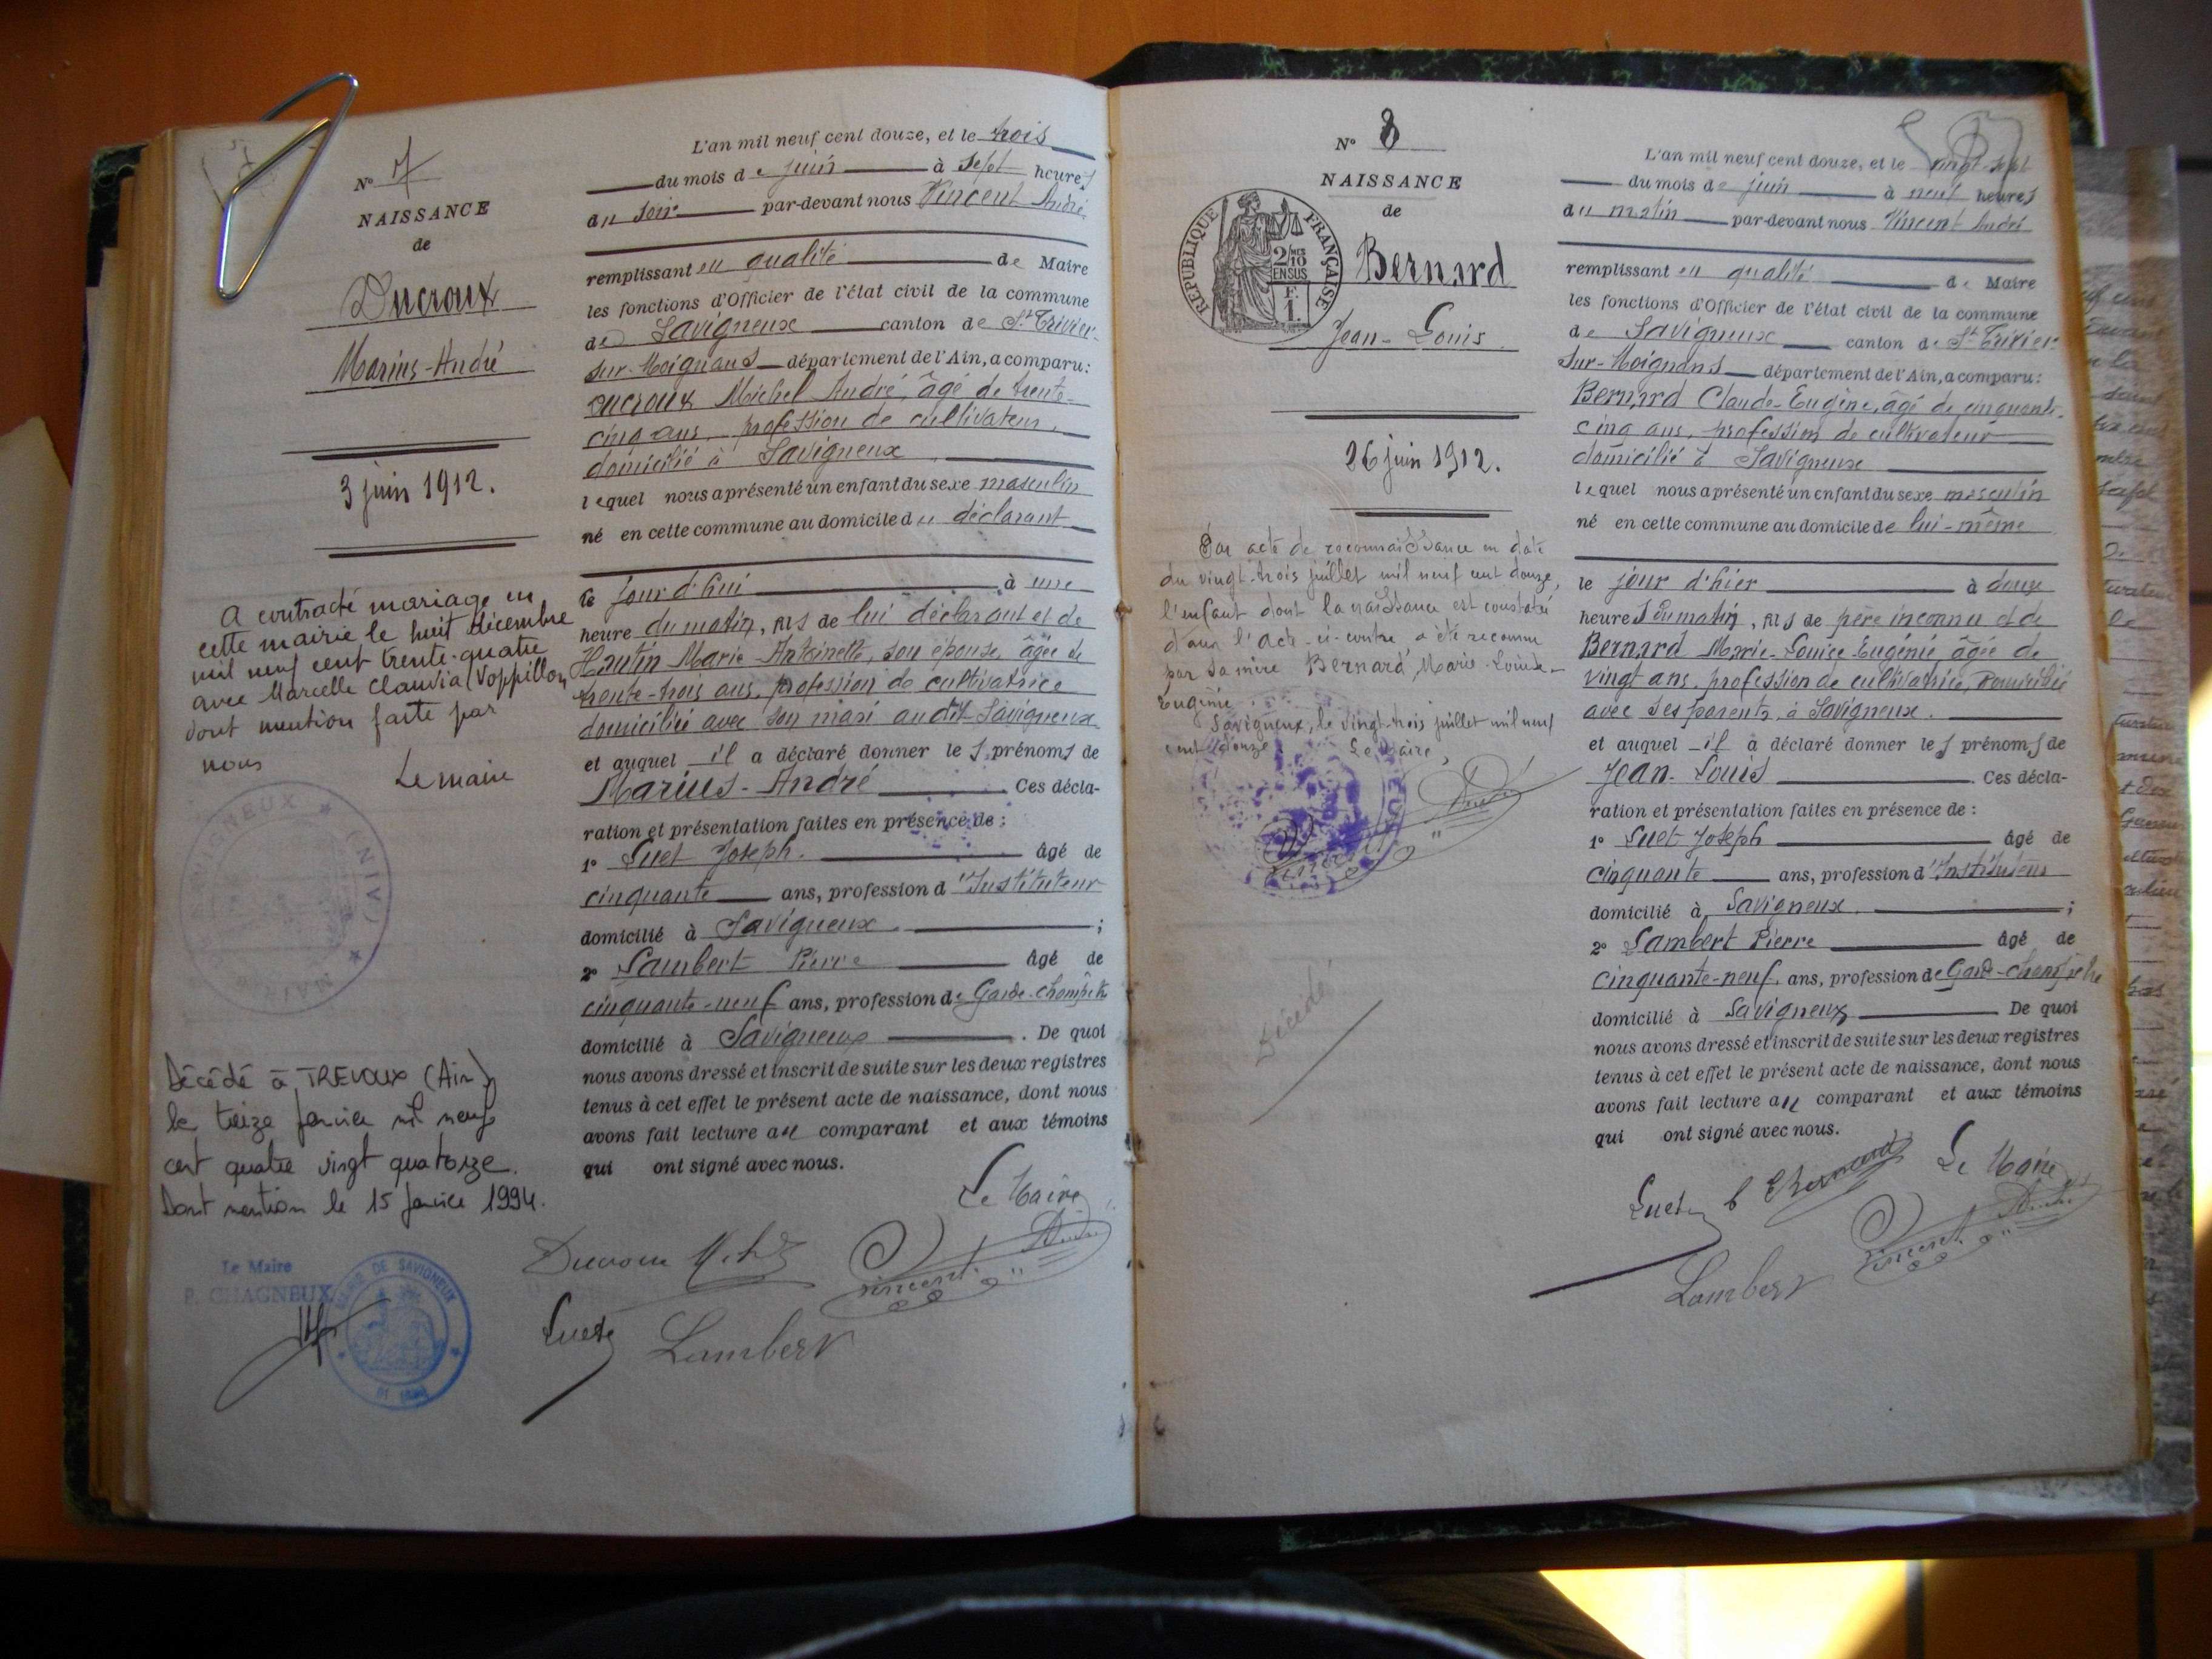 N° 7
NAISSANCE
de
Ducroux
Marius-André
3 juin 1912.
A contracté mariage en
cette mairie le huit décembre
mil neuf cent trente-quatre
avec Marcelle Claudia Voppillon
dont mention faite par
nous
Le maire
Décédé à TREVOUX (Ain)
le treize janvier mil neuf
cent quatre vingt quatorze.
Dont mention le 15 janvier 1994.
Le Maire
P. CHAGNEUX
MAIRIE DE SAVIGNEUX
L'an mil neuf cent douze, et le trois
du mois de juin à sept heures
du soir par-devant nous Vincent André
remplissant en qualité de Maire
les fonctions d'Officier de l'état civil de la commune
de Savigneux canton de St Trivier-
sur-Moignans département de l'Ain, a comparu :
Ducroux Michel André, âgé de trente-
cinq ans, profession de cultivateur,
domicilié à Savigneux
lequel nous a présenté un enfant du sexe masculin
né en cette commune au domicile du déclarant
le jour d'hui à une
heure du matin, fils de lui déclarant et de
Hautin Marie-Antoinette, son épouse, âgée de
trente-trois ans, profession de cultivatrice
domiciliée avec son mari audit Savigneux
et auquel il a déclaré donner les prénoms de
Marius-André Ces décla-
ration et présentation faites en présence de :
1° Luet Joseph. âgé de
cinquante ans, profession d'Instituteur
domicilié à Savigneux ;
2° Lambert Pierre âgé de
cinquante-neuf ans, profession de Garde-champêtre
domicilié à Savigneux . De quoi
nous avons dressé et inscrit de suite sur les deux registres
tenus à cet effet le présent acte de naissance, dont nous
avons fait lecture au comparant et aux témoins
qui ont signé avec nous.
Le Maire
Ducroux
Vincent André
Luet
Lambert
N° 8
NAISSANCE
de
REPUBLIQUE FRANÇAISE
2/10 MES
EN SUS
F.
1.
Bernard
Jean-Louis
26 juin 1912.
Par acte de reconnaissance en date
du vingt-trois juillet mil neuf cent douze,
l'enfant dont la naissance est constatée
dans l'acte ci-contre a été reconnu
par sa mère Bernard, Marie-Louise-
Eugénie.
Savigneux, le vingt-trois juillet mil neuf
cent douze
Le Maire,
Décédé
L'an mil neuf cent douze, et le vingt-sept
du mois de juin à neuf heures
du matin par-devant nous Vincent André
remplissant en qualité de Maire
les fonctions d'Officier de l'état civil de la commune
de Savigneux canton de St Trivier-
sur-Moignans département de l'Ain, a comparu :
Bernard Claude-Eugène, âgé de cinquante-
cinq ans, profession de cultivateur
domicilié à Savigneux
lequel nous a présenté un enfant du sexe masculin
né en cette commune au domicile de lui-même
le jour d'hier à deux
heures du matin, fils de père inconnu et de
Bernard Marie-Louise-Eugénie âgée de
vingt ans, profession de cultivatrice, domiciliée
avec ses parents, à Savigneux.
et auquel il a déclaré donner les prénoms de
Jean-Louis . Ces décla-
ration et présentation faites en présence de :
1° Luet Joseph âgé de
cinquante ans, profession d'Instituteur
domicilié à Savigneux ;
2° Lambert Pierre âgé de
cinquante-neuf ans, profession de Garde-champêtre
domicilié à Savigneux De quoi
nous avons dressé et inscrit de suite sur les deux registres
tenus à cet effet le présent acte de naissance, dont nous
avons fait lecture au comparant et aux témoins
qui ont signé avec nous.
Luet
Le Maire
Vincent André
Lambert